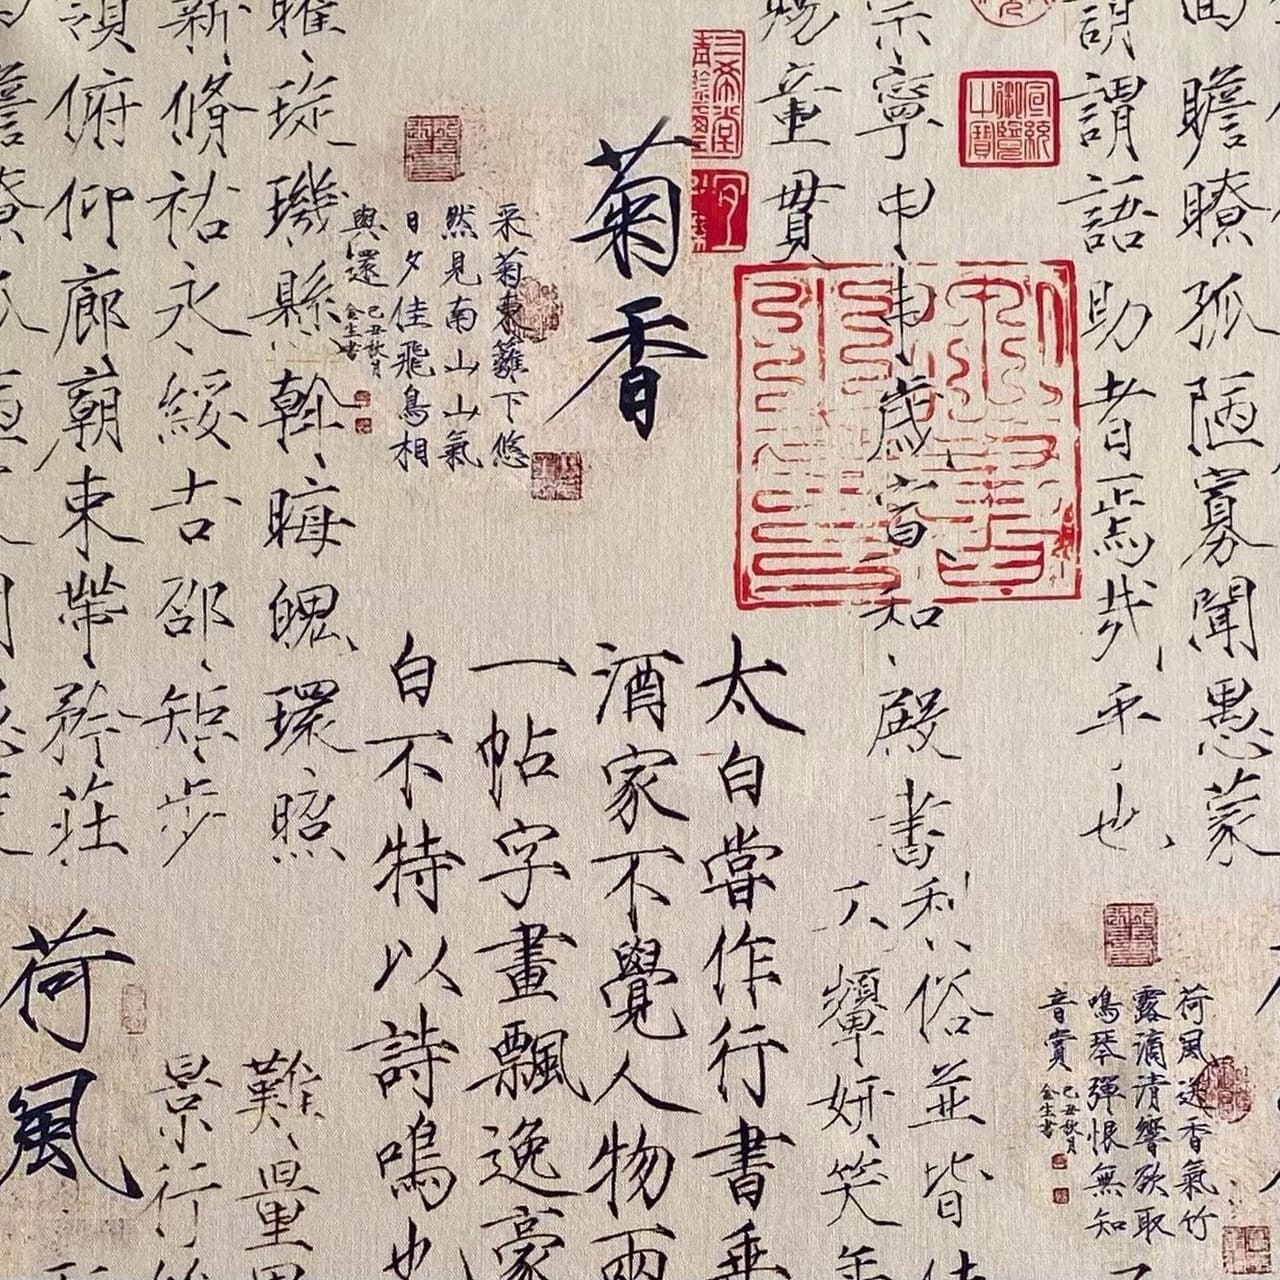 瞻瞭孤陋寡聞愚蒙
誚謂語助者焉哉乎也
寧申申歲宣和殿書
賜童貫
宣統御覽之寶
三希堂
菊香
采菊東籬下悠
然見南山山氣
日夕佳飛鳥相
與還
己丑秋月
金生書
曜璇璣縣斡晦魄環照
薪脩祜永綏吉邵矩步
領俯仰廊廟束帶矜莊
利俗並皆
顰妍笑年
太白嘗作行書乘
酒家不覺人物兩
一帖字畫飄逸豪
白不特以詩鳴也
難量
景行
荷風
荷風送香氣竹
露滴清響欲取
鳴琴彈恨無知
音賞
己丑秋月
金生書